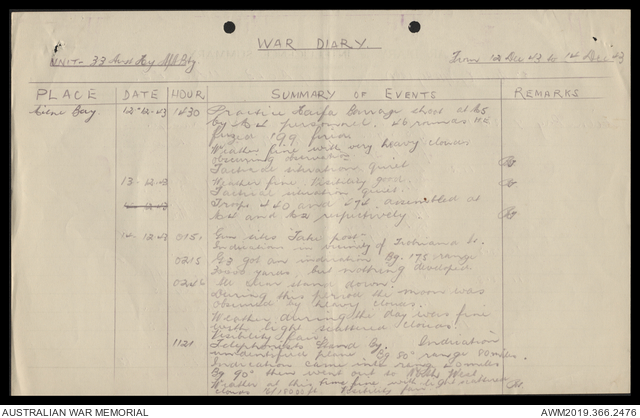 WAR DIARY.
UNIT- 33 Aust Hy AA Bty
From 12 Dec 43 to 14 Dec 43
PLACE DATE HOUR SUMMARY OF EVENTS REMARKS
Bay. 12-12-43 1430 Practice Barrage shoot at
by personnel. 46 rounds H.E.
Weather fine with very heavy clouds
obscuring
Tactical situation quiet.
13-12-43 Weather fine. Visibility good.
Tactical situation quiet.
Troops 440 and 474 assembled at
and respectively.
14-12-43 015 Gun sites Take post.
Indication in vicinity of Is.
0215 got an indication Bg. 175 range
yards, but nothing developed
0246 All clear stand down.
During this period the moon was
obscured by heavy clouds.
Weather during the day was fine
with light scattered clouds.
Visibility fair.
1121 Telephonists Stand By. Indication
unidentified plane. Bg 80° range 80 miles.
Indication came into range 20 miles
Bg 90° then went out to West.
Weather at this time fine with light scattered
clouds Visibility fair.
AUSTRALIAN WAR MEMORIAL
AWM2019.366.2476